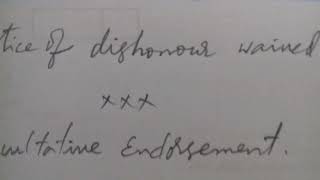 tice of dishonour waived
xxx
ultative Endorsement.